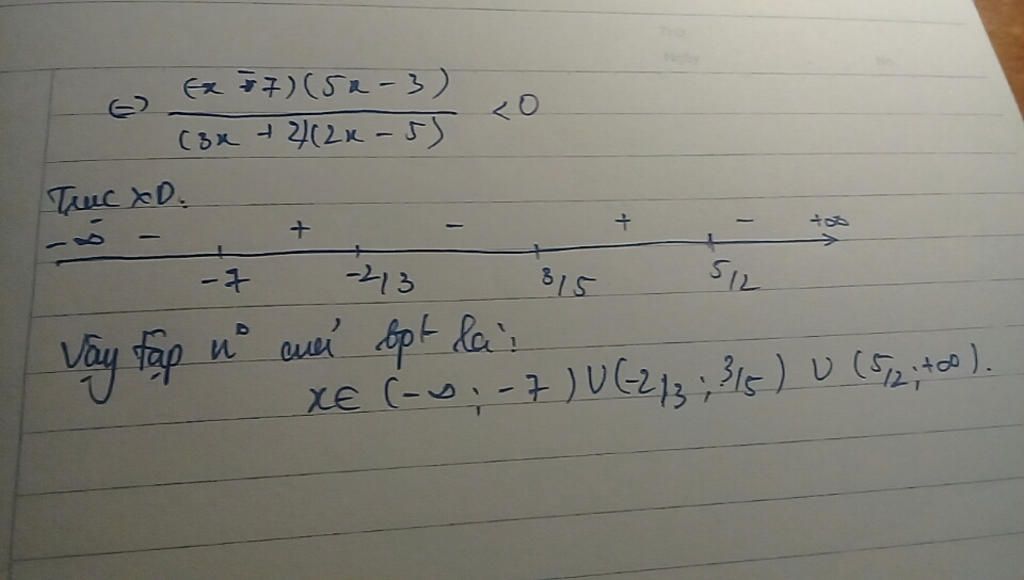 ⇔ (-x - 7)(5x - 3) / (3x + 2)(2x - 5) < 0
Trục xD.
-∞ - + - + - +∞
-7 -2/3 3/5 5/2
Vậy tập n° của bpt là:
x ∈ (-∞; -7) ∪ (-2/3; 3/5) ∪ (5/2; +∞).